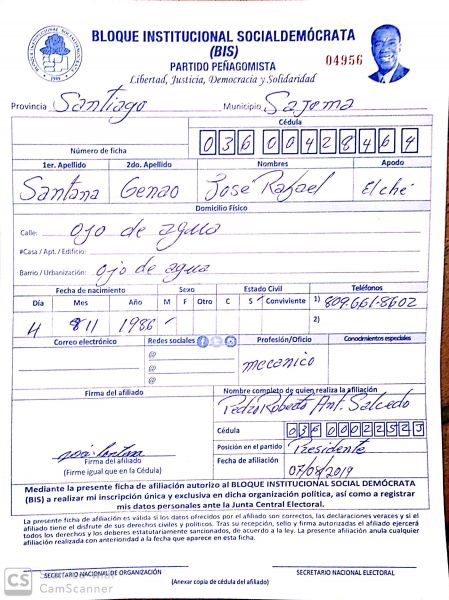 BLOQUE INSTITUCIONAL SOCIALDEMÓCRATA
(BIS)
04956
PARTIDO PEÑAGOMISTA
Libertad, Justicia, Democracia y Solidaridad
Provincia Santiago Municipio Sajoma
Cédula
Número de ficha 03600428464
1er. Apellido 2do. Apellido Nombres Apodo
Santana Genao Jose Rafael Elché
Domicilio Físico
Calle: ojo de agua
#Casa / Apt. / Edificio:
Barrio / Urbanización: ojo de agua
Fecha de nacimiento Sexo Estado Civil Teléfonos
Día Mes Año M F Otro C S Conviviente 1) 809.661-8602
4 11 1986 2)
Correo electrónico Redes sociales Profesión/Oficio Conocimientos especiales
@
@
@
mecanico
Firma del afiliado Nombre completo de quien realiza la afiliación
Pedro Roberto Ant. Salcedo
Cédula
Posición en el partido Presidente
Firma del afiliado Fecha de afiliación
(Firme igual que en la Cédula) 07/08/2019
Mediante la presente ficha de afiliación autorizo al BLOQUE INSTITUCIONAL SOCIAL DEMÓCRATA
(BIS) a realizar mi inscripción única y exclusiva en dicha organización política, así como a registrar
mis datos personales ante la Junta Central Electoral.
La presente ficha de afiliación es válida si los datos ofrecidos por el afiliado son correctos, las declaraciones veraces y si el
afiliado tiene el disfrute de sus derechos civiles y políticos. Tras su recepción, sello y firma autorizadas el afiliado ejercerá
todos los derechos y los deberes estatutariamente sancionados, de acuerdo a la ley. La presente afiliación anula cualquier
afiliación realizada con anterioridad a la fecha que aparece en esta ficha.
SECRETARIO NACIONAL DE ORGANIZACIÓN SECRETARIO NACIONAL ELECTORAL
(Anexar copia de cédula del afiliado)
CS
CamScanner